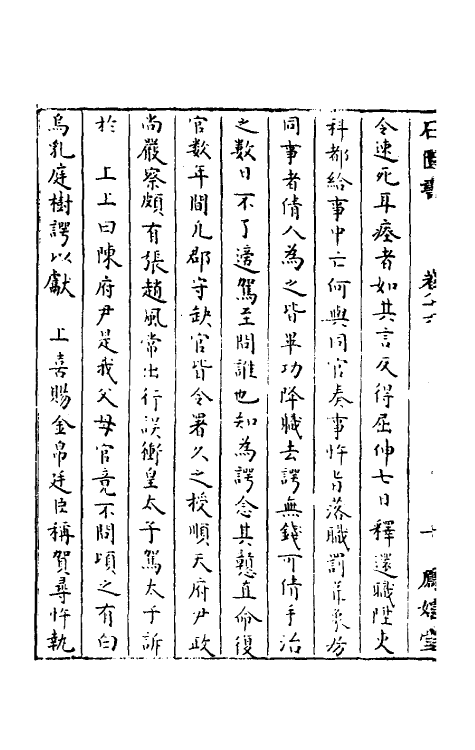 石匱書　卷六　十　鳳嬉堂
令速死耳瘞者如其言反得屈伸七日釋還職陞火
科都給事中亡何與同官奏事忤旨落職罰葺象房
同事者倩人為之皆畢功降職去諤無錢可倩手治
之數日不了適駕至問誰也知為諤念其戇直命復
官数年間凡郡守缺官皆令署久之授順天府尹政
尚嚴察頗有張趙風常出行誤衝皇太子駕太子訴
於　上上曰陳府尹是我父母官竟不問頃之有白
烏乳庭樹諤以獻　上喜賜金帛廷臣稱賀尋忤執